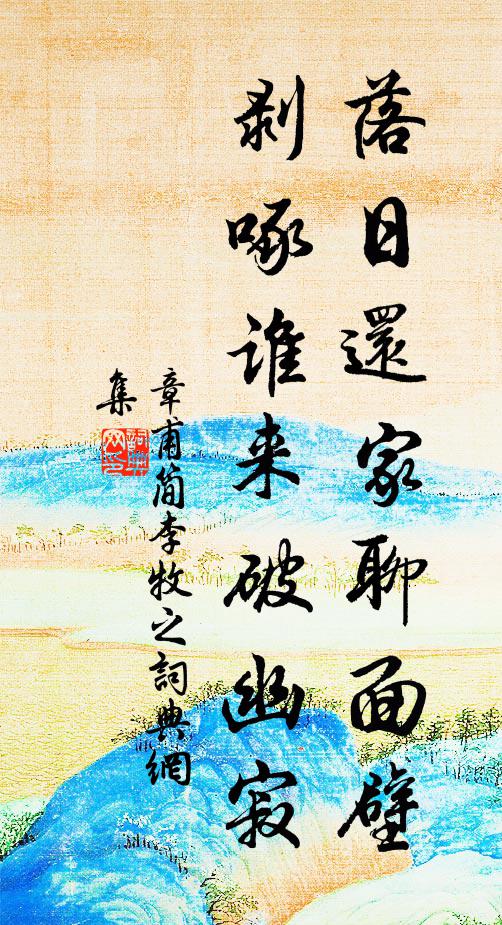 落日還家聊面壁
剥啄谁来破幽寂
章甫简李牧之詞典網
集